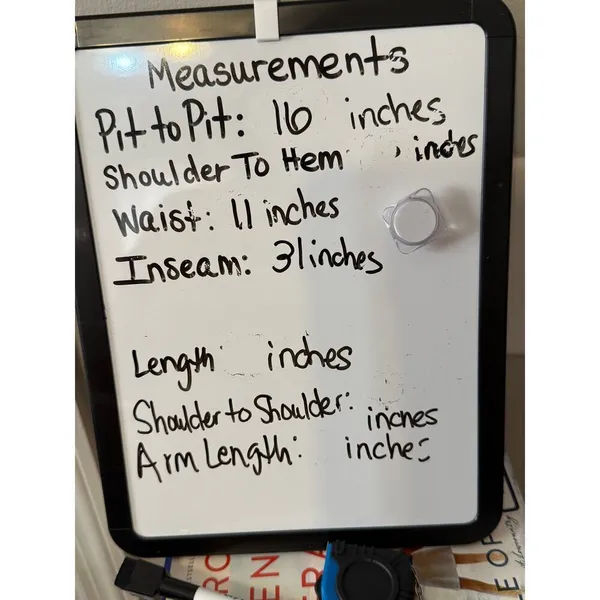 Measurements
Pit to Pit: 16 inches
Shoulder To Hem inches
Waist: 11 inches
Inseam: 31 inches
Length inches
Shoulder to Shoulder: inches
Arm Length: inches